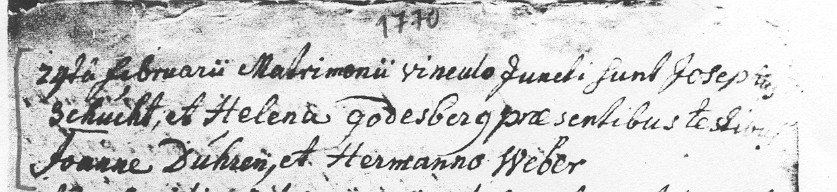 1770
27ta februarii Matrimonii vinculo Juncti sunt Josephus
Schücht, et Helena godesberg præsentibus testibus
Joanne Dühren, et Hermanno Weber